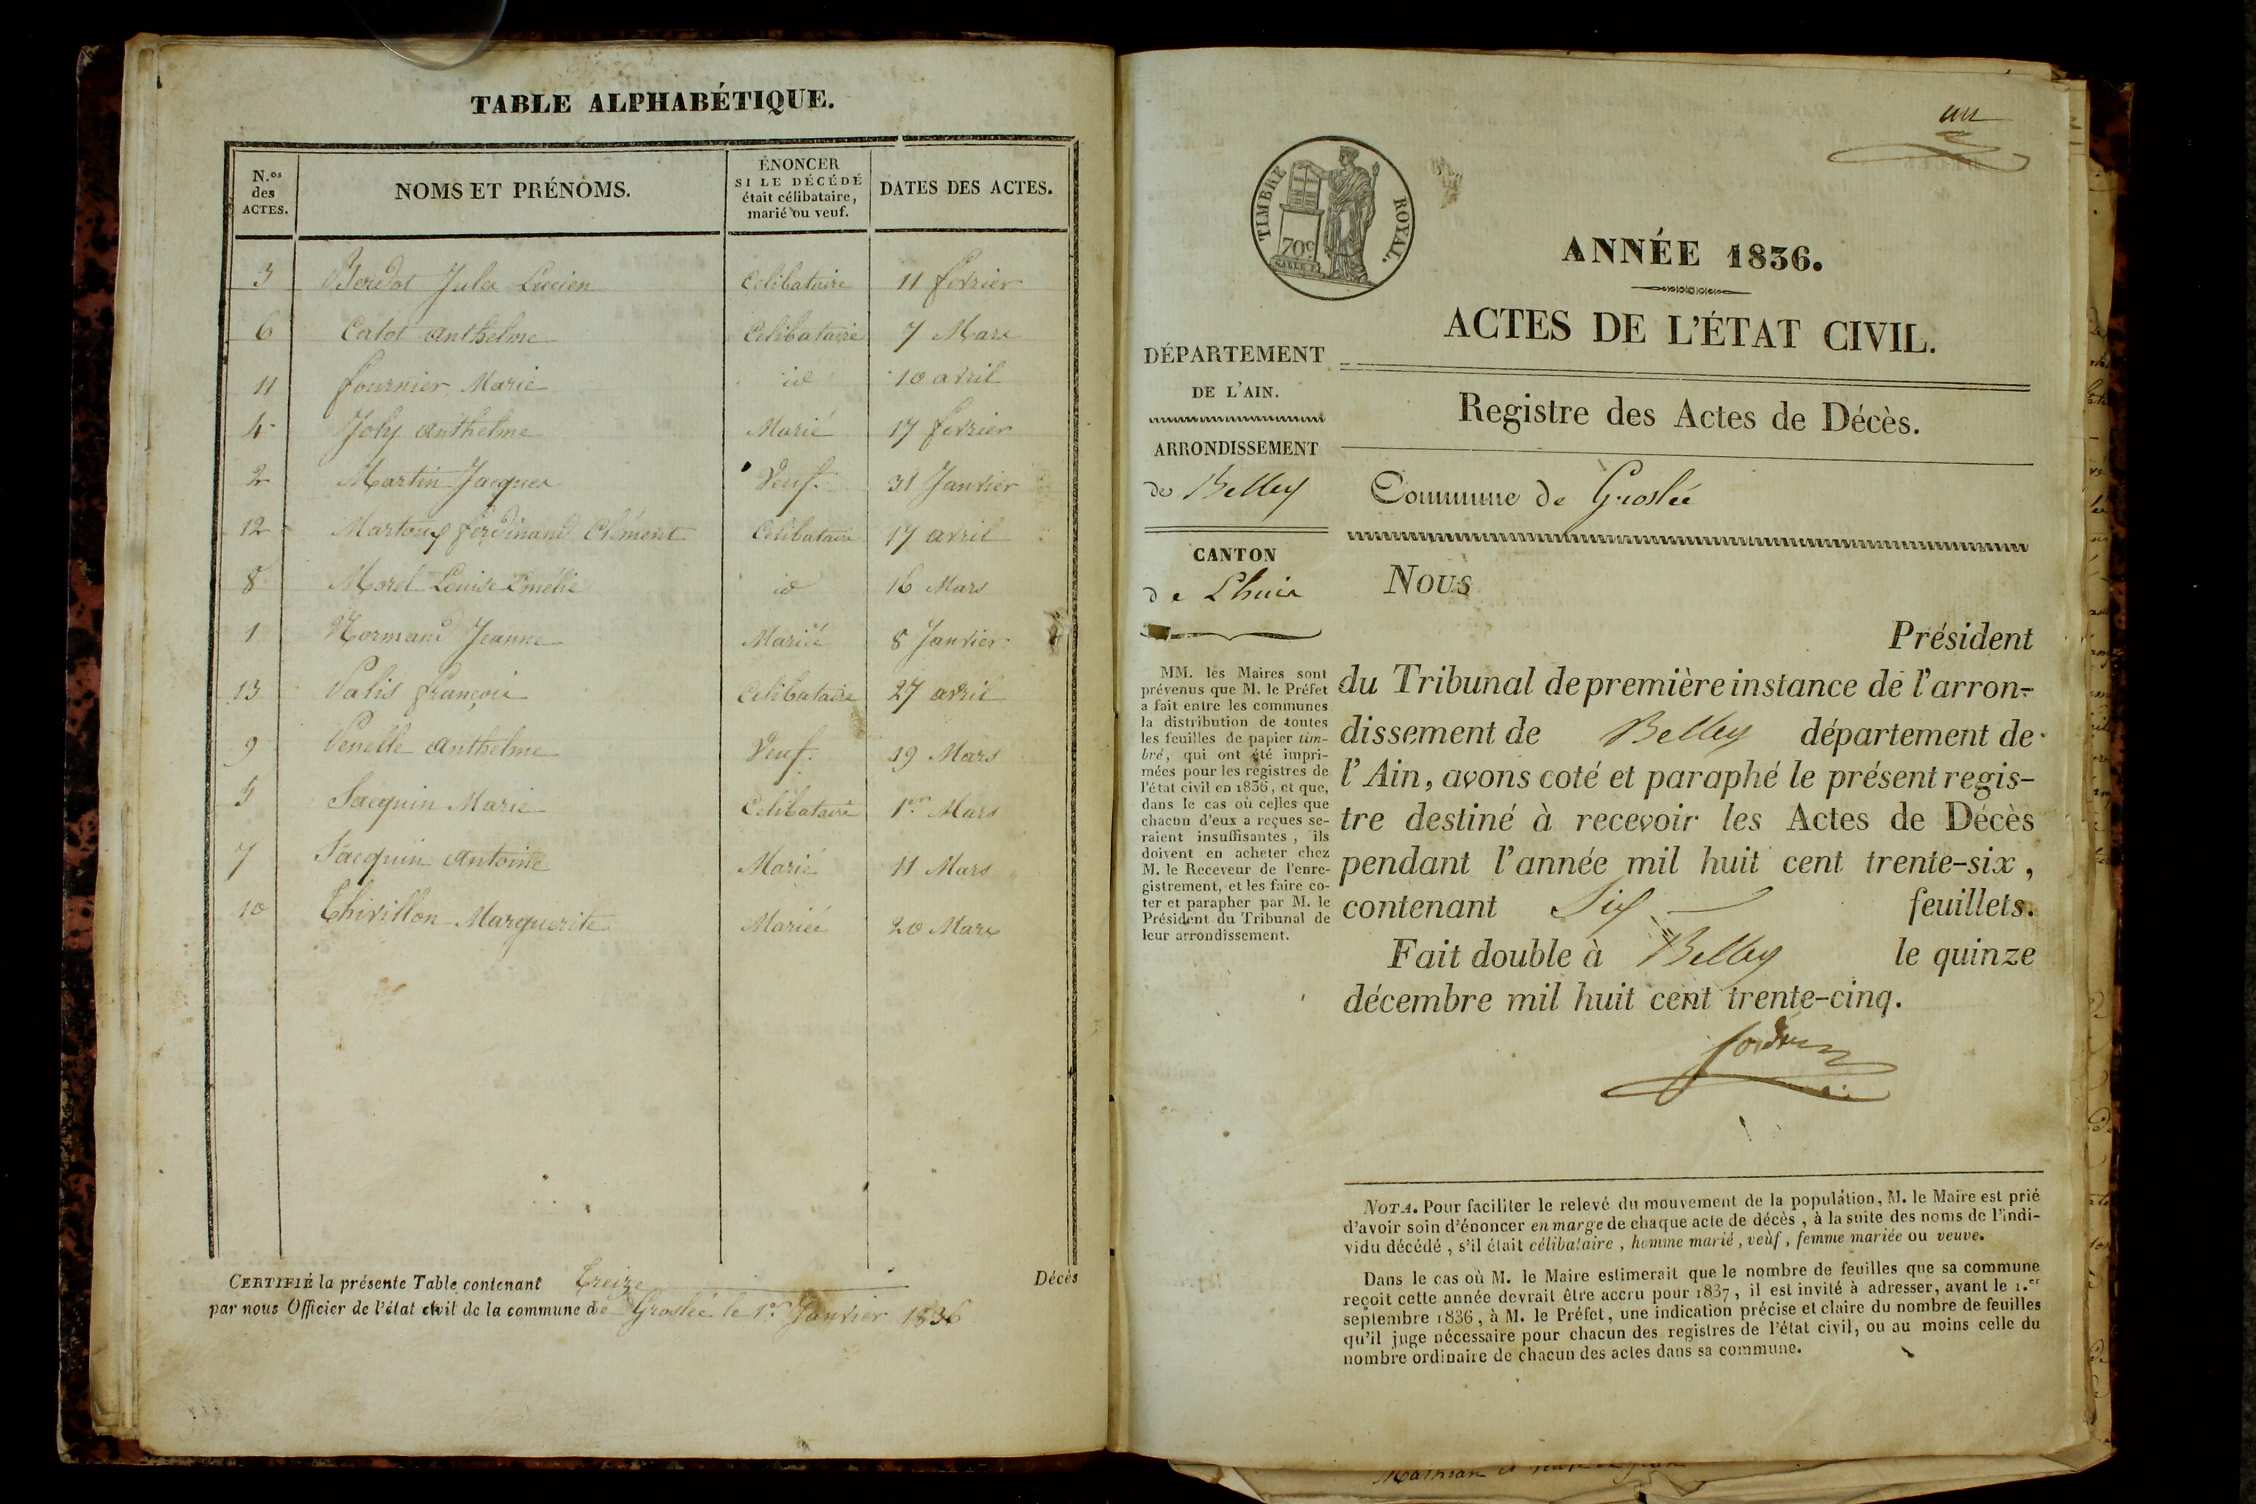 TABLE ALPHABÉTIQUE.
N.os des ACTES.
NOMS ET PRÉNOMS.
ÉNONCER SI LE DÉCÉDÉ était célibataire, marié ou veuf.
DATES DES ACTES.
3 Berdot Jules Lucien Célibataire 11 février
6 Catot anthelme Célibataire 7 Mars
11 fournier Marie id 10 avril
4 Joly anthelme Marié 17 février
2 Martin Jacques Veuf. 31 Janvier
12 ferdinand Clément Célibataire 17 avril
8 Morel Louise Emélie id 16 Mars
1 Normand Jeanne Mariée 8 Janvier
13 françois Célibataire 27 avril
9 Penelle anthelme Veuf. 19 Mars
5 Marie Célibataire 1er Mars
7 antoine Marié 11 Mars
10 Thivillon Marguerite Mariée 20 Mars
CERTIFIÉ la présente Table contenant treize Décès
par nous Officier de l'état civil de la commune de Groslée le 1er Janvier 1836
un
TIMBRE ROYAL.
70c
ANNÉE 1836.
ACTES DE L'ÉTAT CIVIL.
DÉPARTEMENT
DE L'AIN.
ARRONDISSEMENT
de Belley
CANTON
de Lhuis
MM. les Maires sont
prévenus que M. le Préfet
a fait entre les communes
la distribution de toutes
les feuilles de papier tim-
bré, qui ont été impri-
mées pour les registres de
l'état civil en 1836, et que,
dans le cas où celles que
chacun d'eux a reçues se-
raient insuffisantes, ils
doivent en acheter chez
M. le Receveur de l'enre-
gistrement, et les faire co-
ter et parapher par M. le
Président du Tribunal de
leur arrondissement.
Registre des Actes de Décès.
Commune de Groslée
Nous
Président
du Tribunal de première instance de l'arron-
dissement de Belley département de
l'Ain, avons coté et paraphé le présent regis-
tre destiné à recevoir les Actes de Décès
pendant l'année mil huit cent trente-six,
contenant Six feuillets.
Fait double à Belley le quinze
décembre mil huit cent trente-cinq.
NOTA. Pour faciliter le relevé du mouvement de la population, M. le Maire est prié
d'avoir soin d'énoncer en marge de chaque acte de décès, à la suite des noms de l'indi-
vidu décédé, s'il était célibataire, homme marié, veuf, femme mariée ou veuve.
Dans le cas où M. le Maire estimerait que le nombre de feuilles que sa commune
reçoit cette année devrait être accru pour 1837, il est invité à adresser, avant le 1.er
septembre 1836, à M. le Préfet, une indication précise et claire du nombre de feuilles
qu'il juge nécessaire pour chacun des registres de l'état civil, ou au moins celle du
nombre ordinaire de chacun des actes dans sa commune.